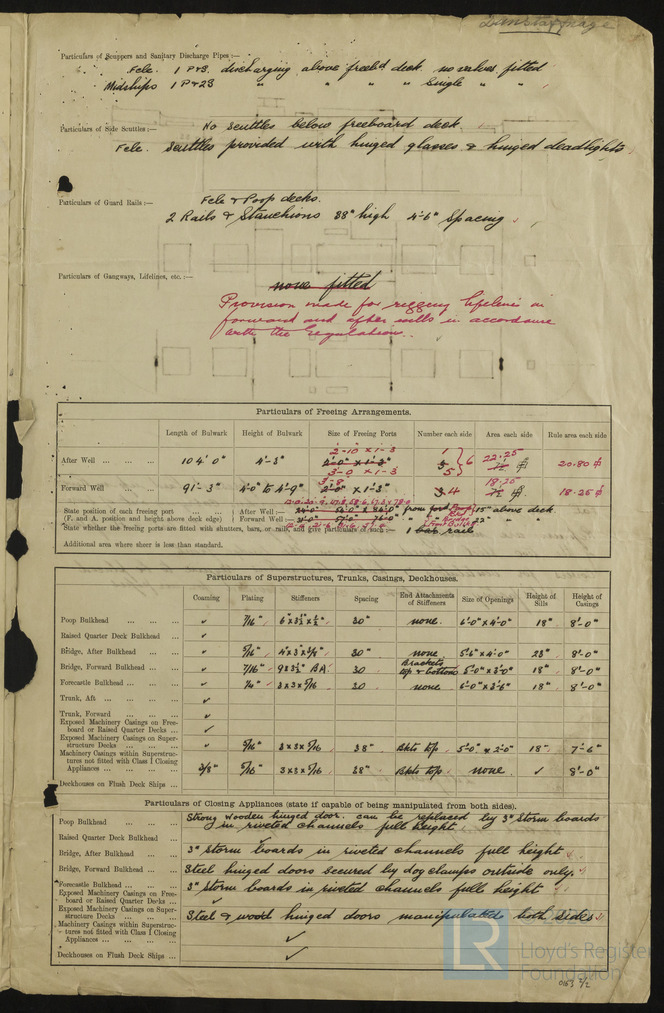 Dunstaffnage
Particulars of Scuppers and Sanitary Discharge Pipes :—
Fcle. 1 P & S. discharging above freebd deck no valves fitted
Midships 1 P & 2S " " " " Single " "
Particulars of Side Scuttles :—
No Scuttles below freeboard deck.
Fcle. Scuttles provided with hinged glasses & hinged deadlights
Particulars of Guard Rails :—
Fcle & Poop decks.
2 Rails & Stanchions 38" high 4'-6" Spacing
Particulars of Gangways, Lifelines, etc. :—
none fitted
Provision made for rigging lifeline in
forward and after wells in accordance
with the regulation.
Particulars of Freeing Arrangements.
Length of Bulwark Height of Bulwark Size of Freeing Ports Number each side Area each side Rule area each side
2-10 x 1-3 1
After Well 104' 0" 4'-3" 2'-0" x 1'-3" 5 6 22.25 20.80
3-0 x 1-3 5
Forward Well 91'-3" 4'-0" to 4'-9" 2'-0" x 1'-3" 3 4 18.75 18.25
State position of each freeing port After Well :— from ford 15" above deck
(F. and A. position and height above deck edge) Forward Well :— " "
State whether the freeing ports are fitted with shutters, bars, or rails, and give particulars of such :— 1 bar rail
Additional area where sheer is less than standard.
Particulars of Superstructures, Trunks, Casings, Deckhouses.
Coaming Plating Stiffeners Spacing End Attachments of Stiffeners Size of Openings Height of Sills Height of Casings
Poop Bulkhead 7/16" 6 x 3½ x ½" 30" none. 6'-0" x 4'-0" 18" 8'-0"
Raised Quarter Deck Bulkhead
Bridge, After Bulkhead 5/16" 30" none 5'-6" x 4'-0" 23" 8'-0"
Bridge, Forward Bulkhead 7/16" 9 x 3½" BA. 30 Brackets top & bottom 5'-0" x 3'-0" 18" 8'-0"
Forecastle Bulkhead 1/4" 3 x 3 x 5/16 30 none 6'-0" x 3'-6" 18" 8'-0"
Trunk, Aft
Trunk, Forward
Exposed Machinery Casings on Free-
board or Raised Quarter Decks
Exposed Machinery Casings on Super-
structure Decks 5/16" 3 x 3 x 5/16 38" Bkts top. 5'-0" x 2'-0" 18" 7'-6"
Machinery Casings within Superstruc-
tures not fitted with Class I Closing
Appliances 3/8" 5/16" 3 x 3 x 5/16 28" Bkts top. none. 8'-0"
Deckhouses on Flush Deck Ships
Particulars of Closing Appliances (state if capable of being manipulated from both sides).
Poop Bulkhead Strong wooden hinged door. can be replaced by 3" Storm boards
in riveted channels full height.
Raised Quarter Deck Bulkhead
Bridge, After Bulkhead 3" Storm boards in riveted channels full height
Bridge, Forward Bulkhead Steel hinged doors secured by dog clamps outside only.
Forecastle Bulkhead 3" Storm boards in riveted channels full height
Exposed Machinery Casings on Free-
board or Raised Quarter Decks
Exposed Machinery Casings on Super-
structure Decks Steel & wood hinged doors manipulated both sides
Machinery Casings within Superstruc-
tures not fitted with Class I Closing
Appliances
Deckhouses on Flush Deck Ships
LR Lloyd's Register
Foundation
0163 2/2